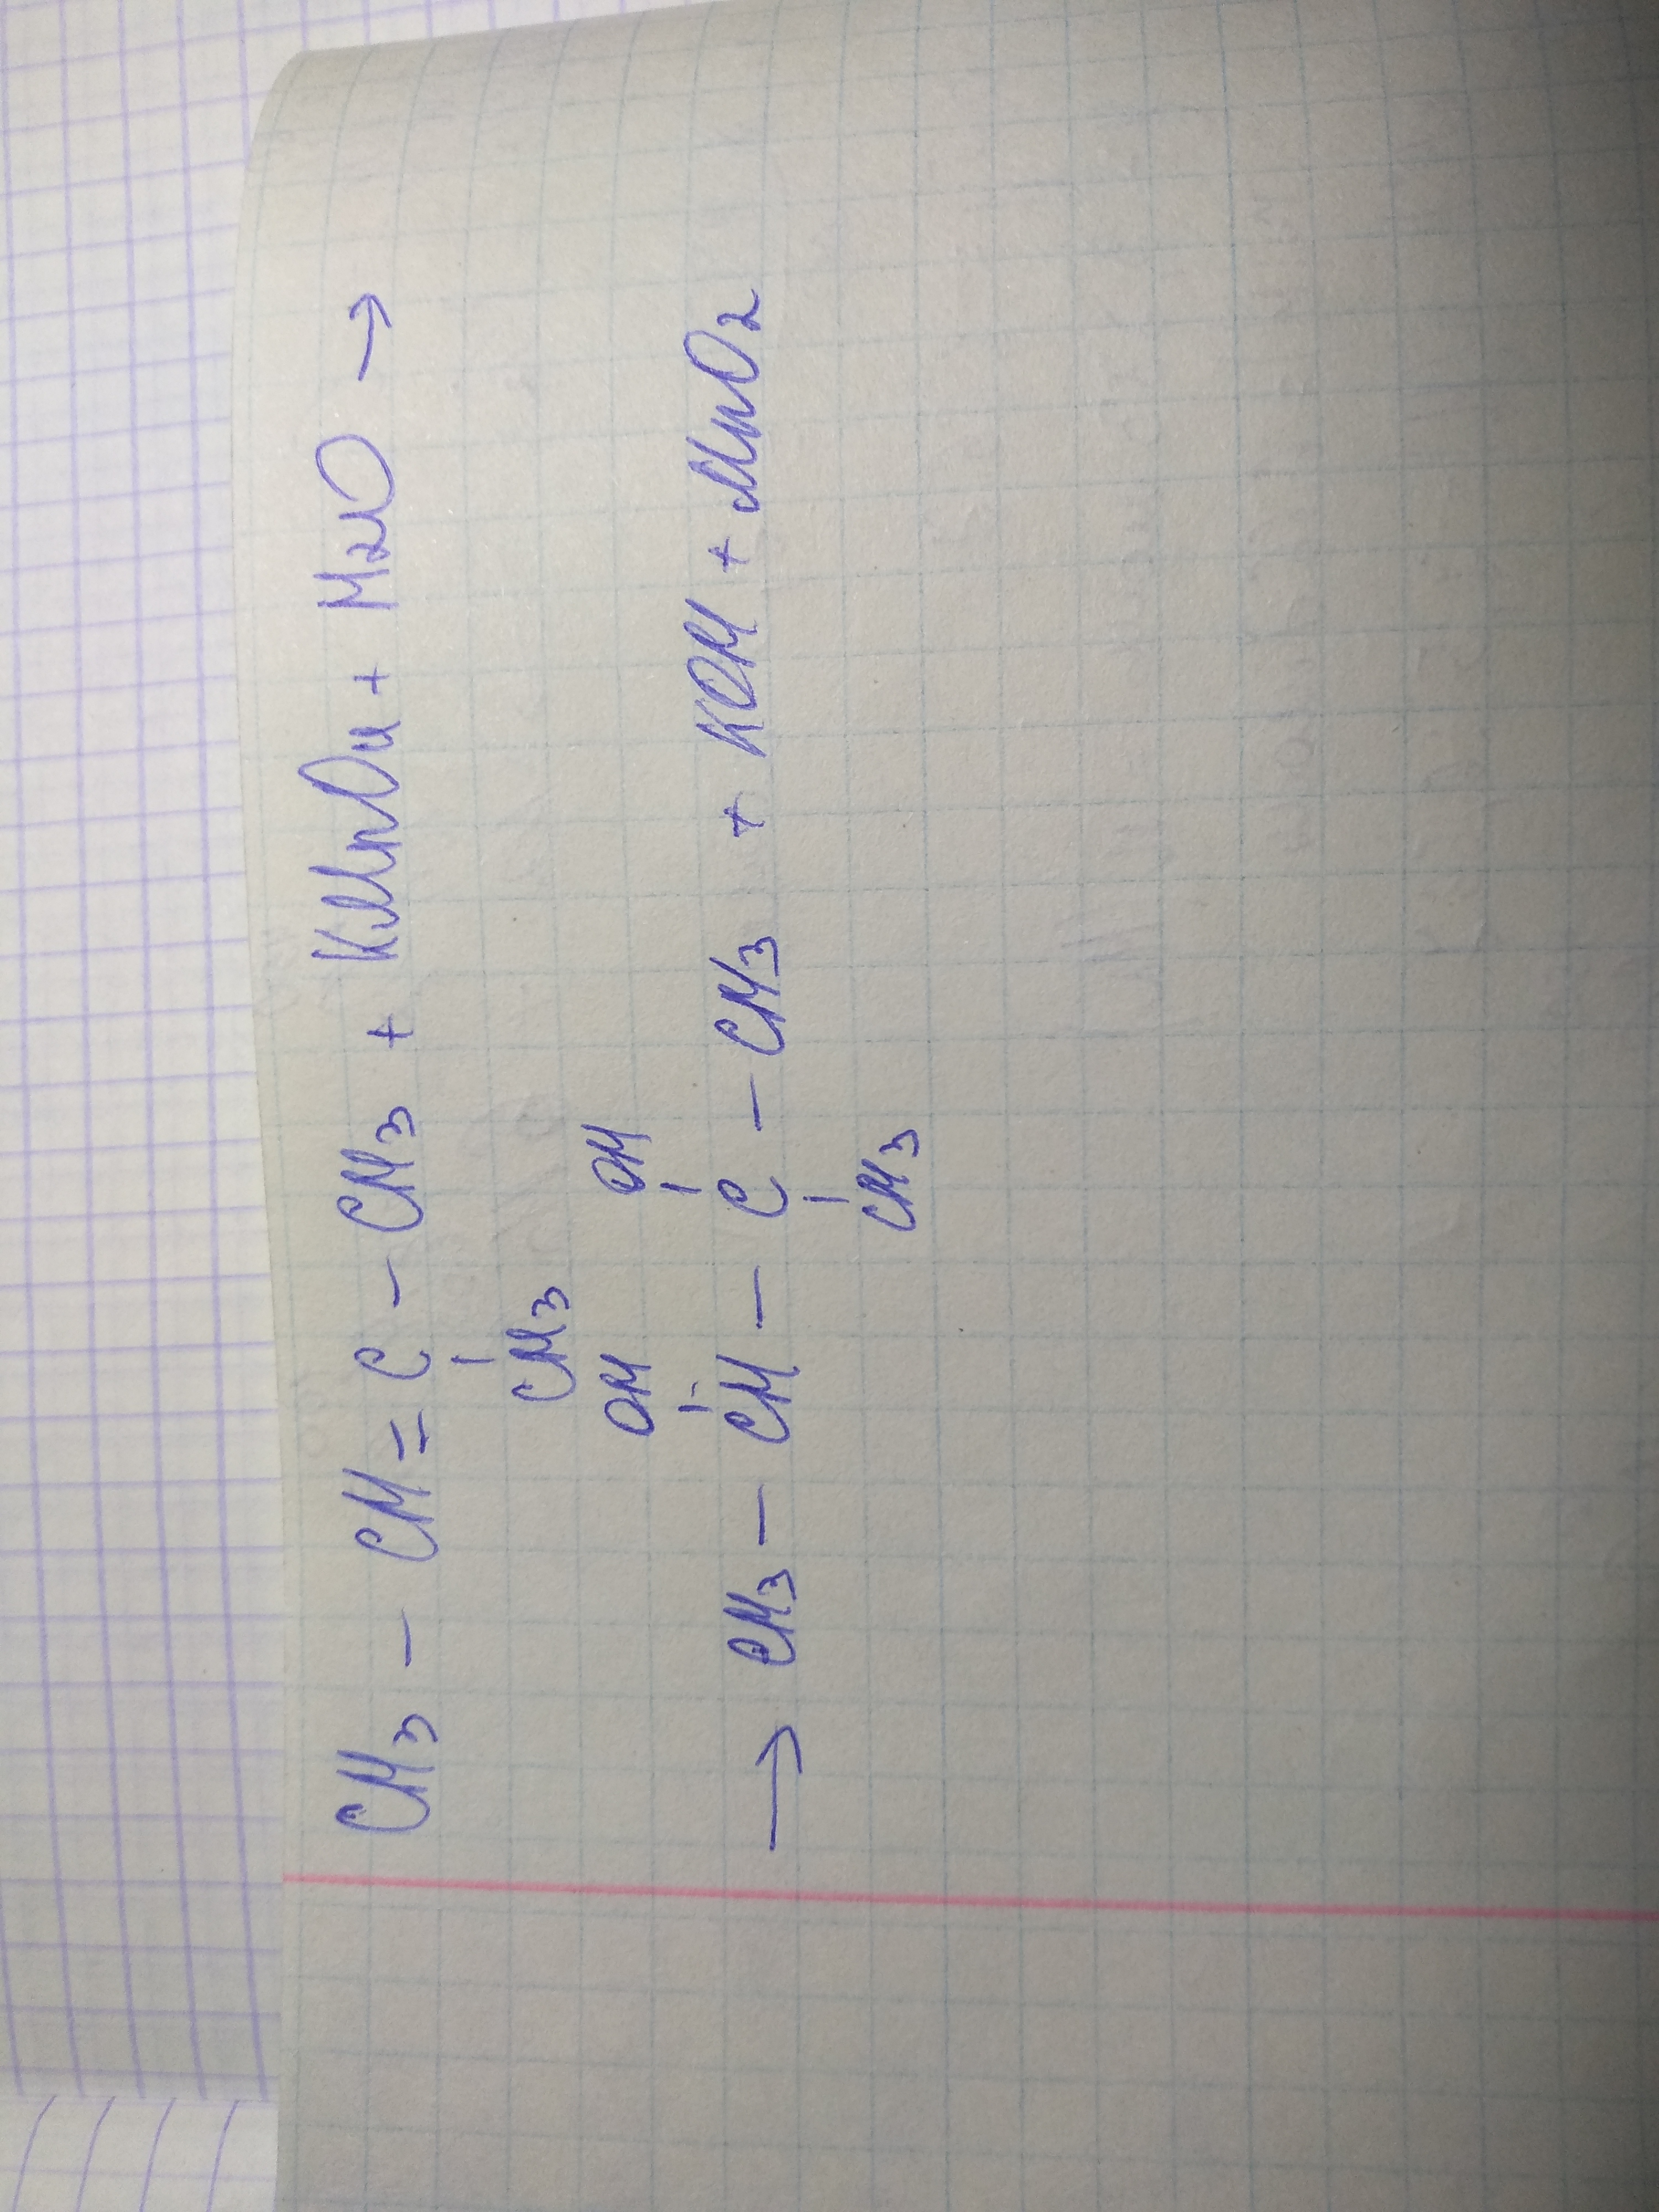 CH3 - CH = C - CH3 + KMnO4 + H2O →
CH3
OH OH
→ CH3 - CH - C - CH3 + KOH + MnO2
CH3